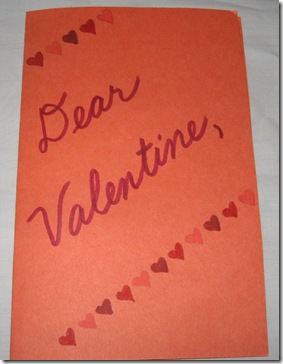 Dear
Valentine,